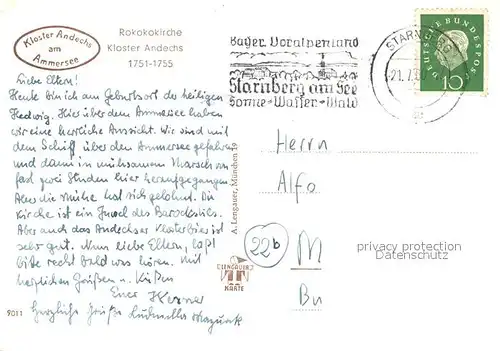 Kloster Andechs
am
Ammersee
Rokokokirche
Kloster Andechs
1751-1755
Bayer. Voralpenland
Starnberg am See
Sonne-Wasser-Wald
STARNBERG
21.7.60
DEUTSCHE BUNDESPOST
10
Liebe Eltern!
Heute bin ich am Geburtsort der heiligen
Hedwig. Hier über dem Ammersee haben
wir eine herrliche Aussicht. Wir sind mit
dem Schiff über den Ammersee gefahren
und dann in mühsamem Marsch von
fast zwei Stunden hier heraufgegangen.
Aber die Mühe hat sich gelohnt. Die
Kirche ist ein Juwel des Barockstils.
Aber auch das Andechser Klosterbier ist
sehr gut. Nun liebe Eltern, laßt
bitte recht bald was hören. Mit
herzlichen Grüßen u. Küßen
Euer Werner
Herzliche Grüße Ludmilla
9011
A. Lengauer, München 19
LENGAUER
KARTE
Herrn
Alfo
22b
M
Bu
privacy protection
Datenschutz